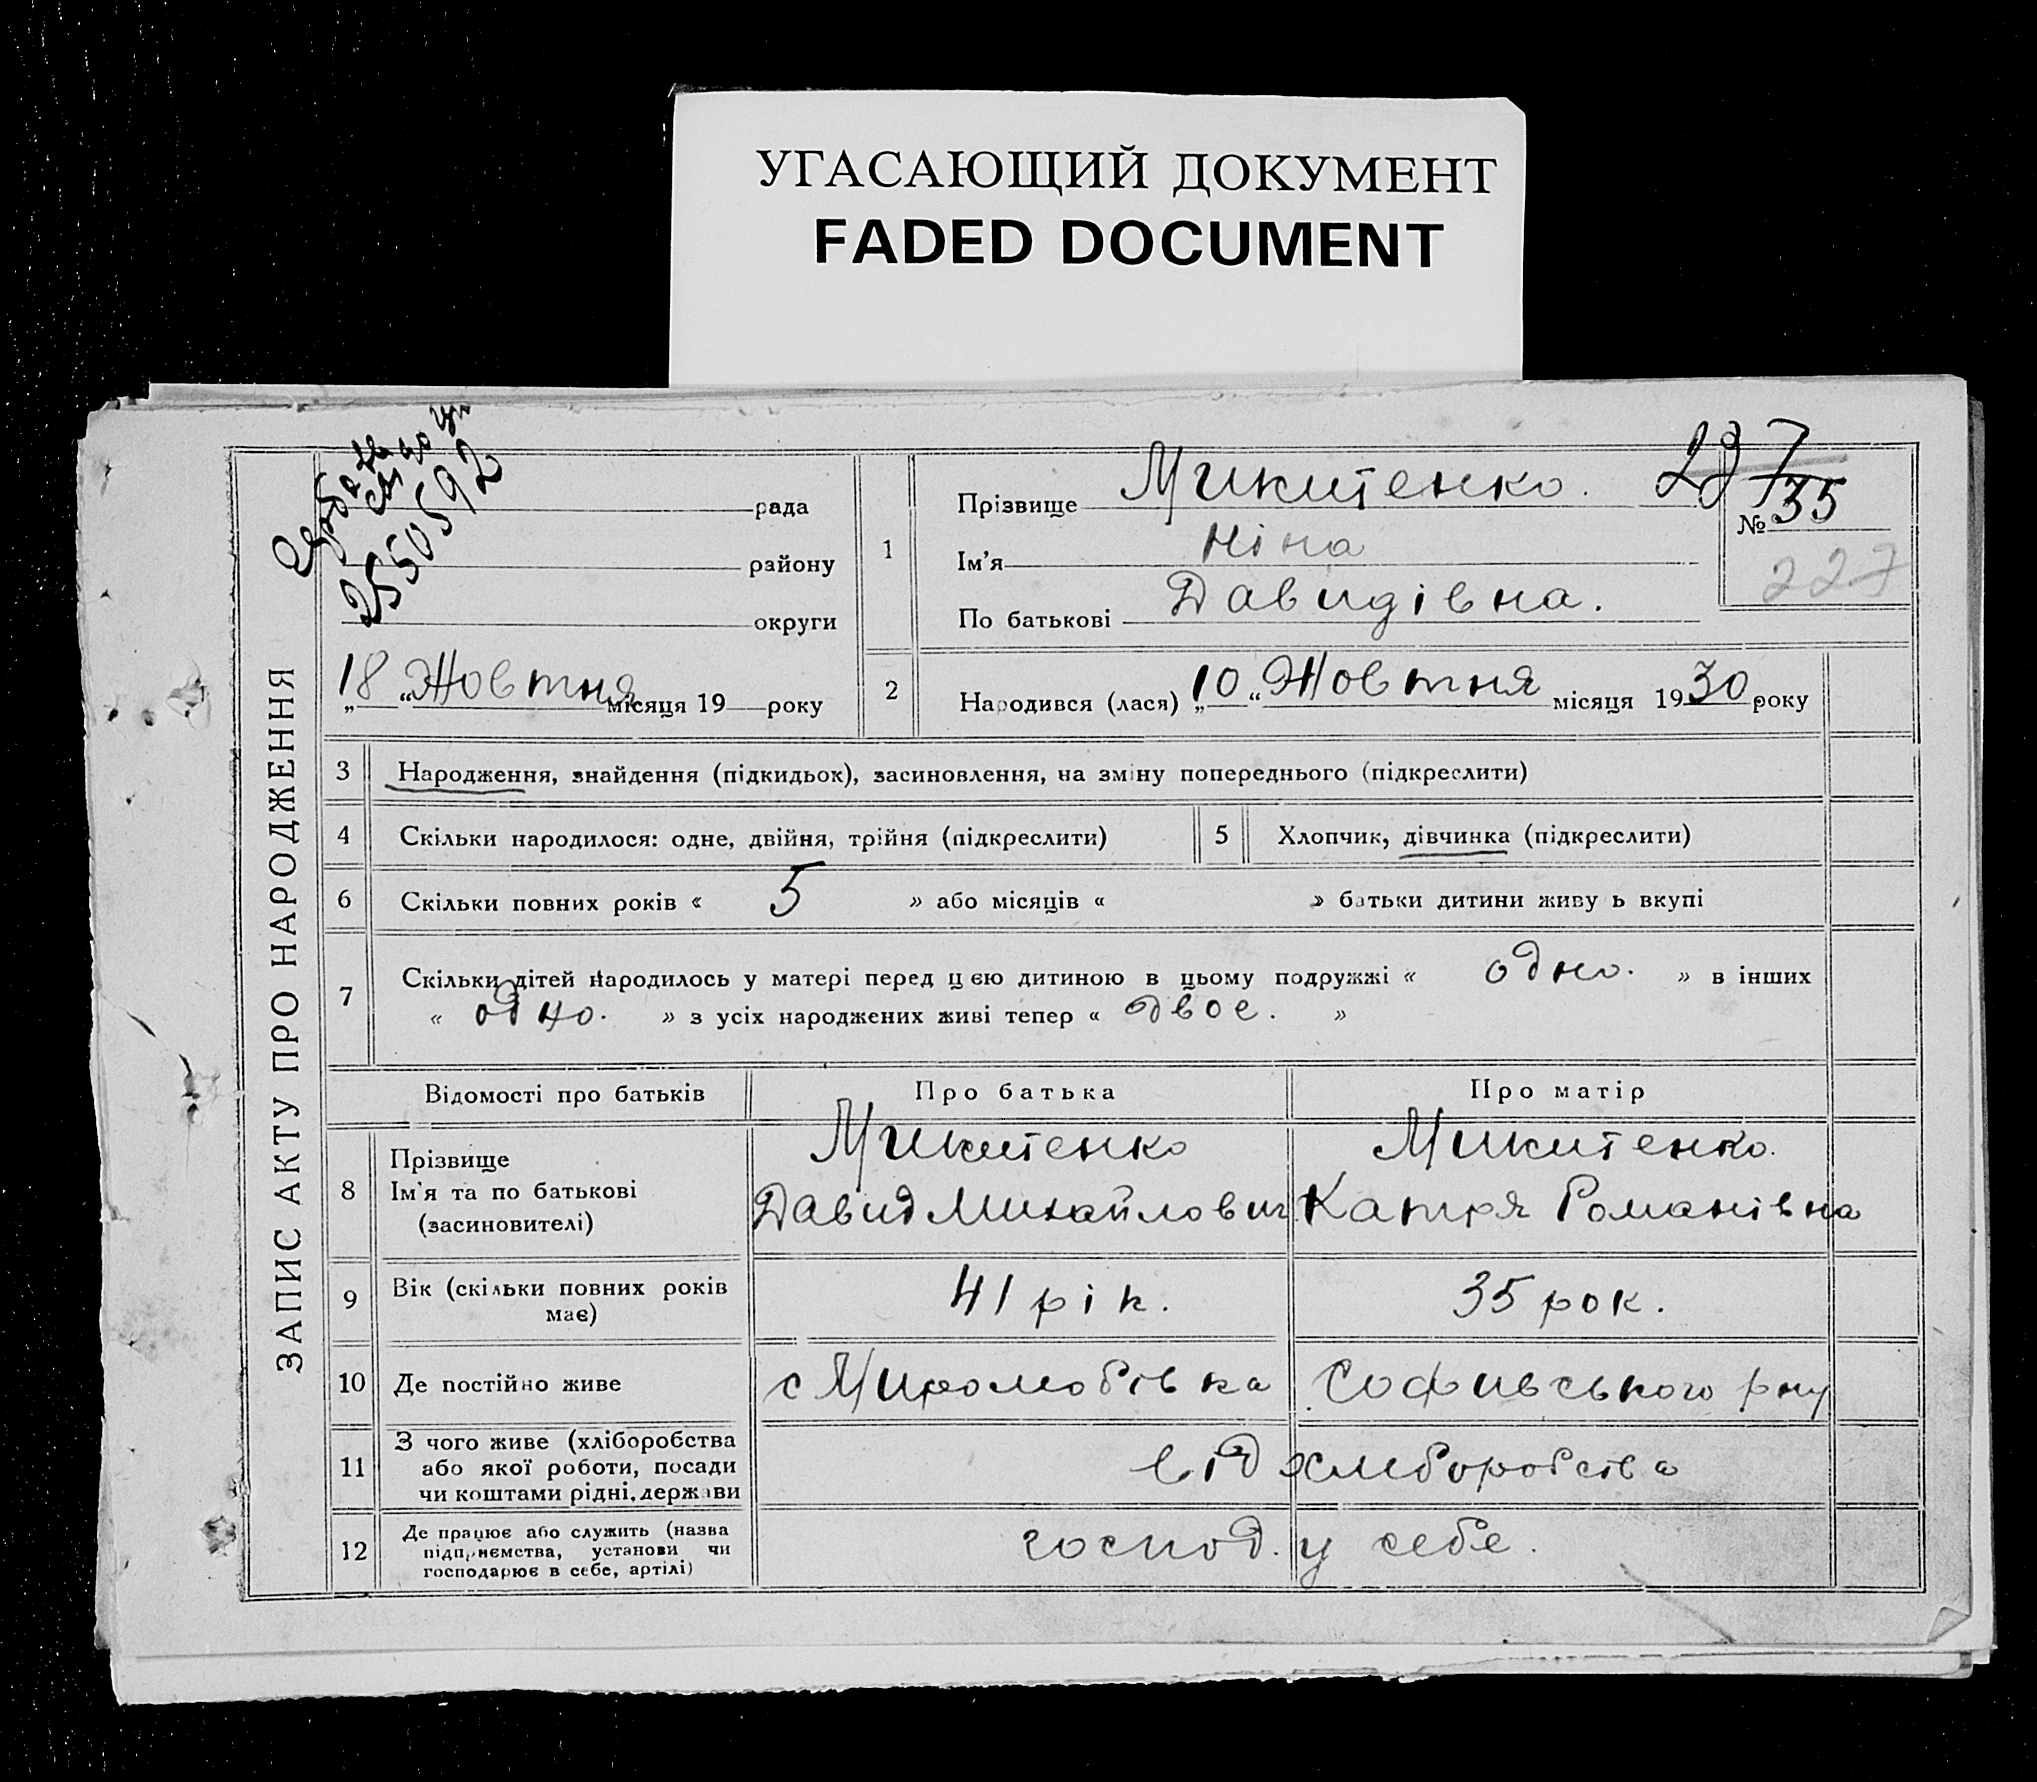 УГАСАЮЩИЙ ДОКУМЕНТ
FADED DOCUMENT
ЗАПИС АКТУ ПРО НАРОДЖЕННЯ
2550592
рада
району
округи
„18“ Жовтня місяця 19 року
1
Прізвище Микитенко.
Ім'я Ніна
По батькові Давидівна.
237
№ 35
227
2 Народився (лася) „10“ Жовтня місяця 1930 року
3 Народження, знайдення (підкидьок), засиновлення, на зміну попереднього (підкреслити)
4 Скільки народилося: одне, двійня, трійня (підкреслити)
5 Хлопчик, дівчинка (підкреслити)
6 Скільки повних років « 5 » або місяців « » батьки дитини живу ь вкупі
7 Скільки дітей народилось у матері перед цєю дитиною в цьому подружжі « одно. » в інших
« одно. » з усіх народжених живі тепер « двоє. »
Відомості про батьків Про батька Про матір
8 Прізвище
Ім'я та по батькові
(засиновителі)
Микитенко
Давид Михайлович
Микитенко.
Катря Романівна
9 Вік (скільки повних років
має)
41 рік.
35 рок.
10 Де постійно живе
с Миролюбівка Софиївського рну
11 З чого живе (хліборобства
або якої роботи, посади
чи коштами рідні, держави
від хліборобства
12 Де працює або служить (назва
підприємства, установи чи
господарює в себе, артілі)
господ. у себе.